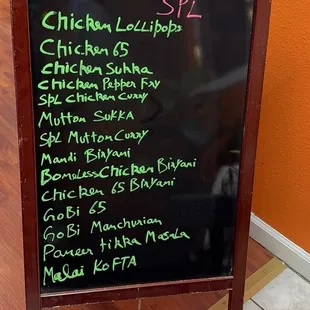 SPL
Chicken Lollipops
Chicken 65
Chicken Sukka
Chicken Pepper Fry
SPL Chicken Curry
Mutton SUKKA
SPL Mutton Curry
Mandi Biryani
Boneless Chicken Biryani
Chicken 65 Biryani
GoBi 65
GoBi Manchurian
Paneer tikka Masala
Malai KOFTA